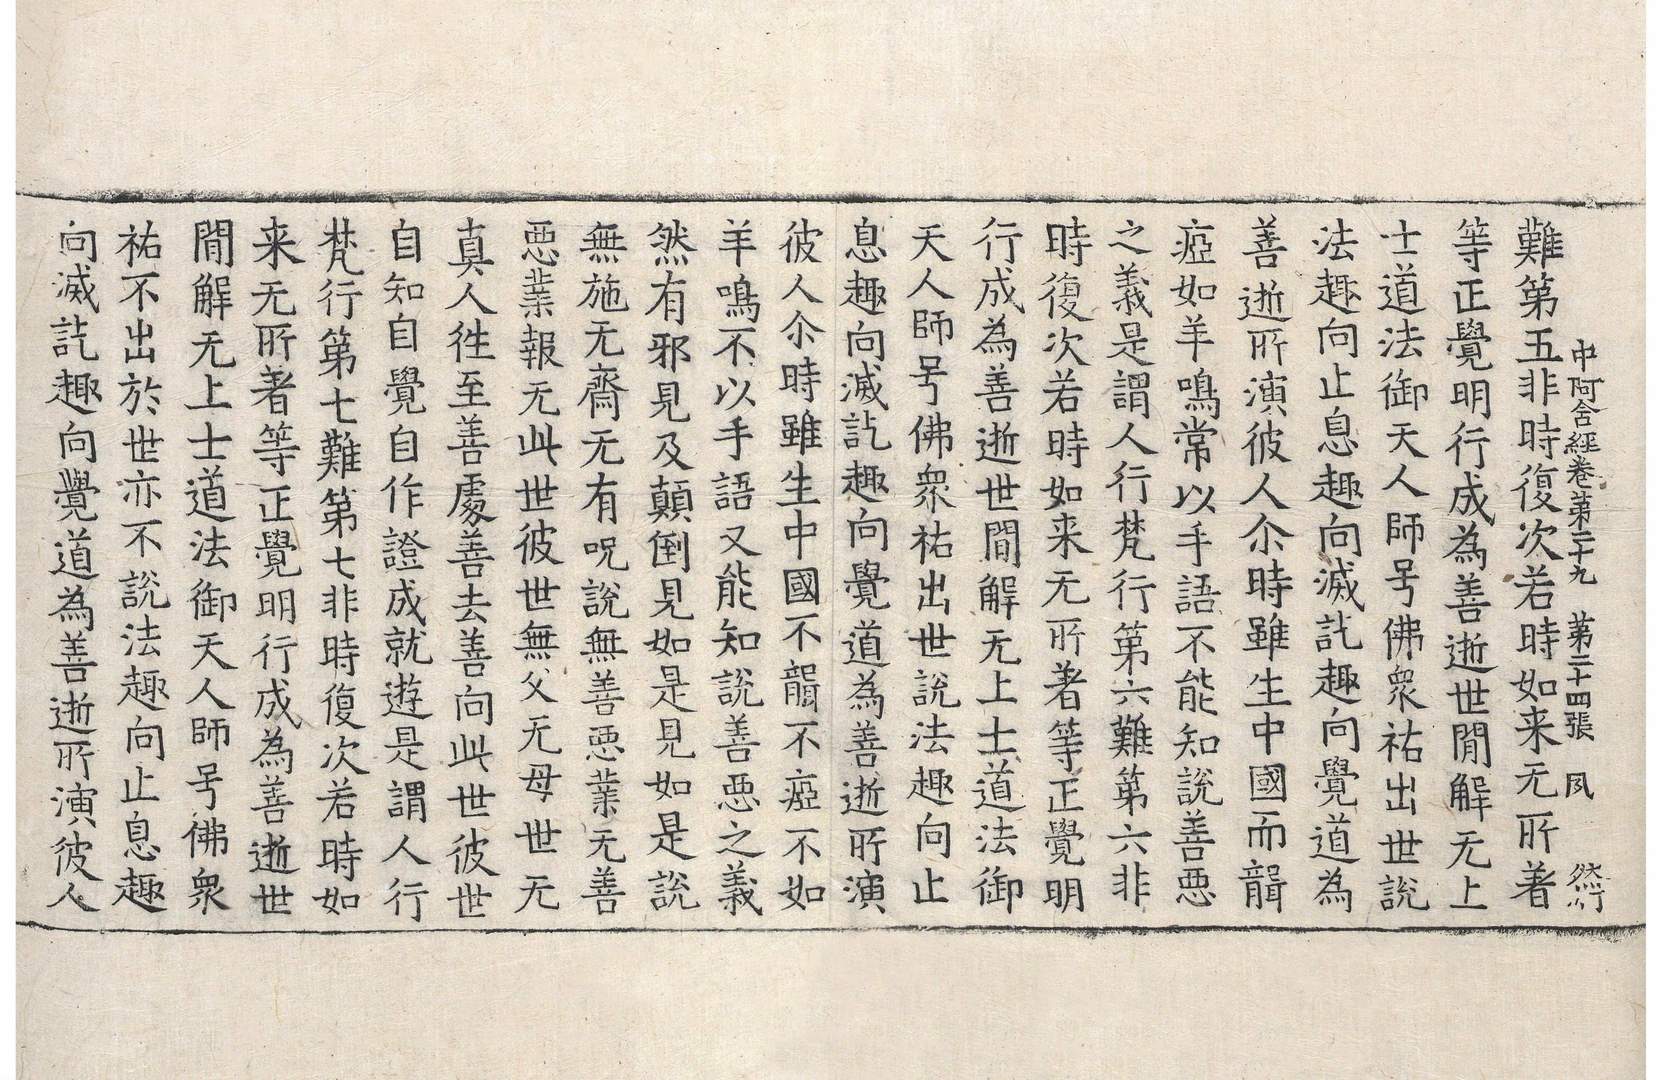 中阿含經卷第二十九 第二十四張 夙
難第五非時復次若時如来无所著
等正覺明行成為善逝世間解无上
士道法御天人師号佛衆祐出世說
法趣向止息趣向滅訖趣向覺道為
善逝所演彼人尒時雖生中國而聾
瘂如羊鳴常以手語不能知說善悪
之義是謂人行梵行第六難第六非
時復次若時如来无所著等正覺明
行成為善逝世間解无上士道法御
天人師号佛衆祐出世說法趣向止
息趣向滅訖趣向覺道為善逝所演
彼人尒時雖生中國不聾不瘂不如
羊鳴不以手語又能知說善悪之義
然有邪見及顛倒見如是見如是說
無施无齋无有呪說無善悪業无善
悪業報无此世彼世無父无母世无
真人徃至善處善去善向此世彼世
自知自覺自作證成就遊是謂人行
梵行第七難第七非時復次若時如
来无所著等正覺明行成為善逝世
間解无上士道法御天人師号佛衆
祐不出於世亦不說法趣向止息趣
向滅訖趣向覺道為善逝所演彼人